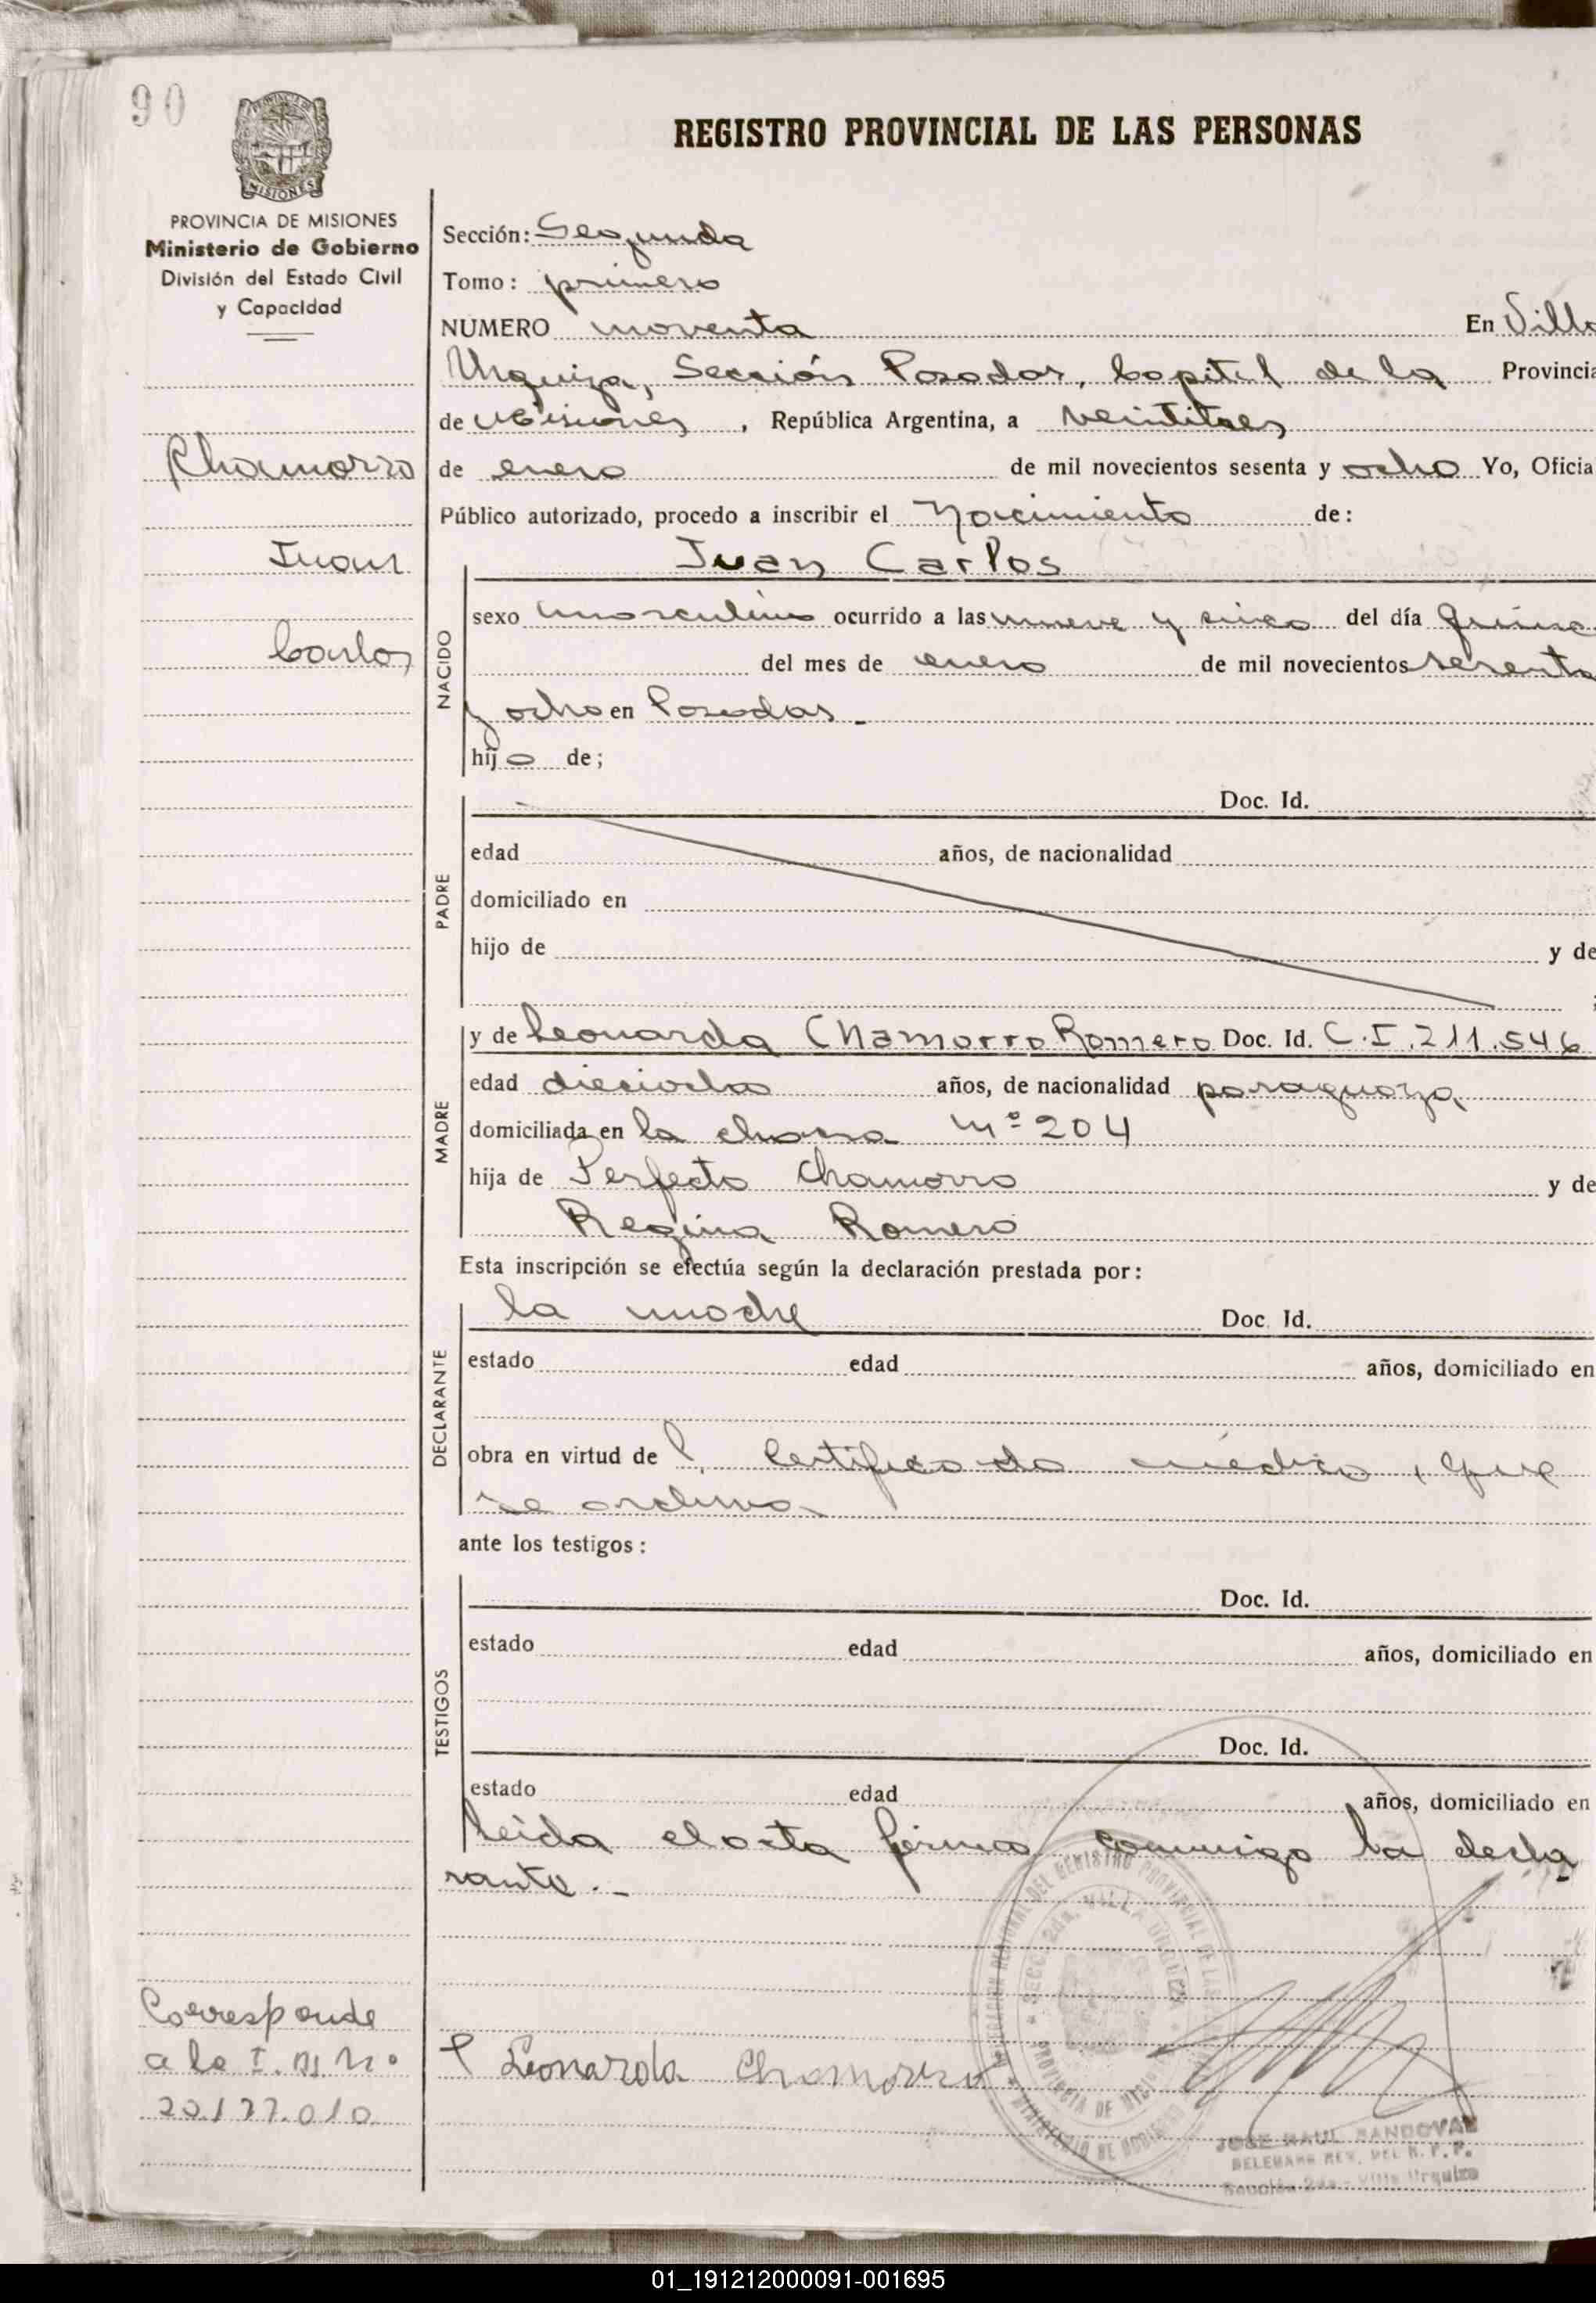 90
PROVINCIA DE MISIONES
Ministerio de Gobierno
División del Estado Civil
y Capacidad
Chamorro
Juan
Carlos
Corresponde
a la I. M. N°
20.177.010
REGISTRO PROVINCIAL DE LAS PERSONAS
Sección: Segunda
Tomo: primero
NUMERO noventa En Villa
Urquiza, Sección Posadas, Capital de la Provincia
de Misiones, República Argentina, a veintitres
de enero de mil novecientos sesenta y ocho Yo, Oficia
Público autorizado, procedo a inscribir el Nacimiento de:
NACIDO
Juan Carlos
sexo masculino ocurrido a las nueve y cinco del día quince
del mes de enero de mil novecientos sesenta
y ocho en Posadas.-
hijo de;
PADRE
Doc. Id.
edad años, de nacionalidad
domiciliado en
hijo de y de
MADRE
y de Leonarda Chamorro Romero Doc. Id. C.I. 211.546
edad dieciocho años, de nacionalidad paraguaya
domiciliada en la chacra n° 204
hija de Perfecto Chamorro y de
Regina Romero
Esta inscripción se efectúa según la declaración prestada por:
DECLARANTE
la madre Doc. Id.
estado edad años, domiciliado en
obra en virtud del certificado médico, que
se archiva
ante los testigos:
TESTIGOS
Doc. Id.
estado edad años, domiciliado en
Doc. Id.
estado edad años, domiciliado en
Leida el acta firma conmigo la decla
rante.-
Leonarda Chamorro
DELEGACION REGIONAL DEL REGISTRO PROVINCIAL DE LAS
SECC. 2da. VILLA URQUIZA
PROVINCIA DE MISIONES
MINISTERIO DE GOBIERNO
JOSE RAUL SANDOVAL
DELEGADO REG. DEL R. P. P.
Sección 2da - Villa Urquiza
01_191212000091-001695